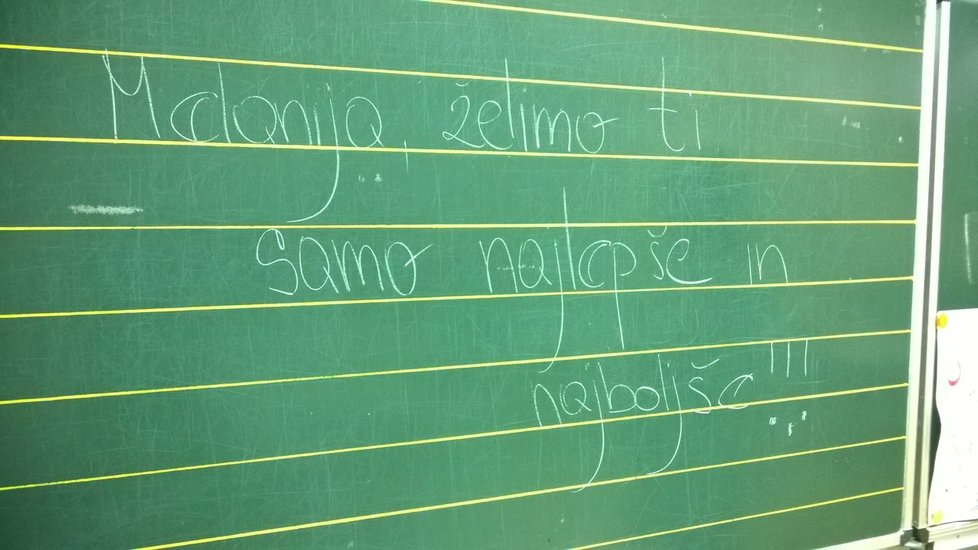 Melanija, želimo ti
samo najlepše in
najboljše!!!